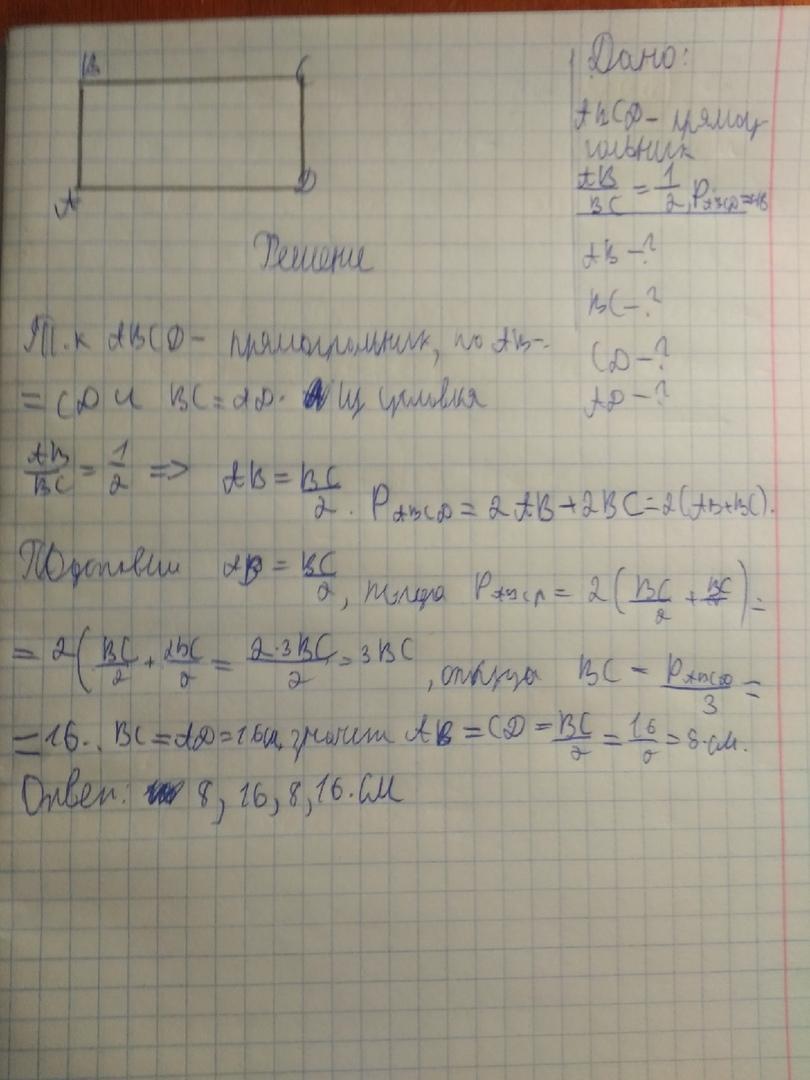 B C
A D
Дано:
ABCD – прямоу-
гольник
AB/BC = 1/2, P_ABCD = 48
AB – ?
BC – ?
CD – ?
AD – ?
Решение
Т.к ABCD – прямоугольник, то AB =
= CD и BC = AD. Из условия
AB/BC = 1/2 => AB = BC/2. P_ABCD = 2AB + 2BC = 2(AB+BC).
Подставим AB = BC/2, тогда P_ABCD = 2(BC/2 + BC) =
= 2(BC/2 + 2BC/2 = 2·3BC/2 = 3BC, откуда BC = P_ABCD/3 =
= 16. BC = AD = 16 см, значит AB = CD = BC/2 = 16/2 = 8 см.
Ответ: 8, 16, 8, 16 см